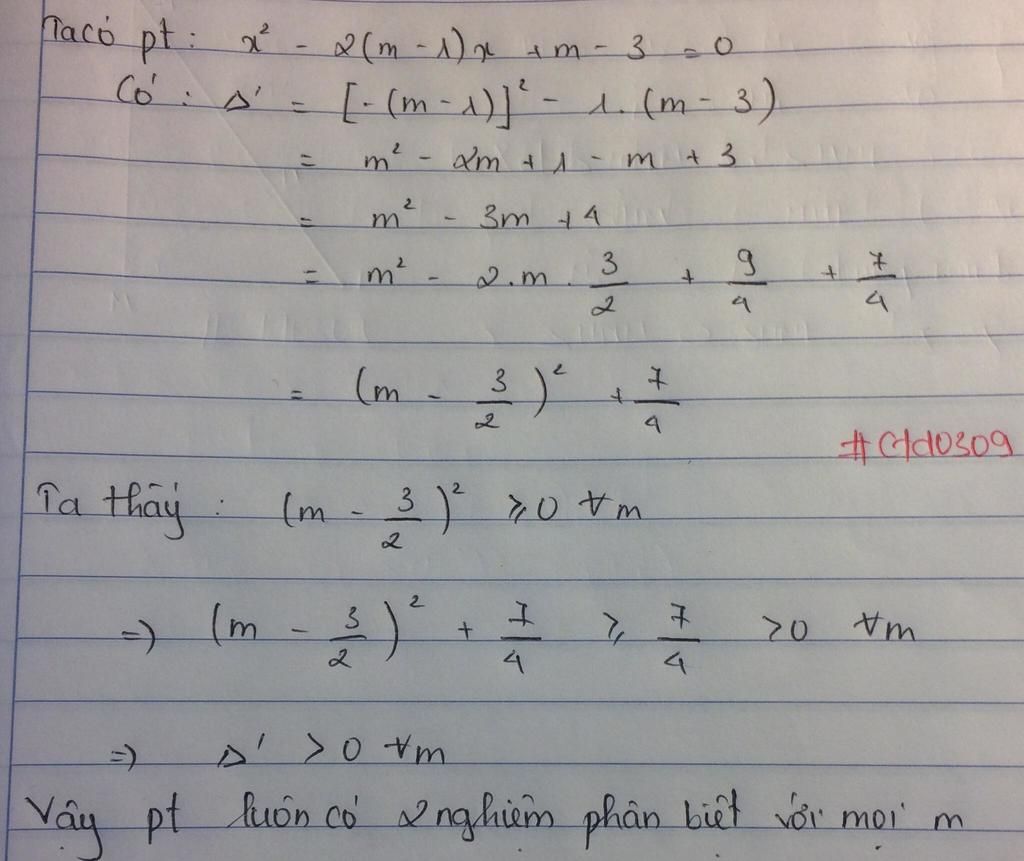 Ta có pt: x² - 2(m - 1)x + m - 3 = 0
Có: Δ' = [-(m - 1)]² - 1.(m - 3)
= m² - 2m + 1 - m + 3
= m² - 3m + 4
= m² - 2.m.3/2 + 9/4 + 7/4
= (m - 3/2)² + 7/4
Ta thấy: (m - 3/2)² ≥ 0 ∀m
=> (m - 3/2)² + 7/4 ≥ 7/4 > 0 ∀m
=> Δ' > 0 ∀m
Vậy pt luôn có 2 nghiệm phân biệt với mọi m